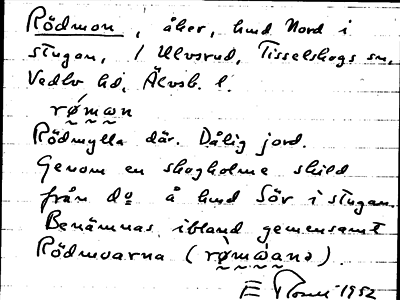 Rödmon, åker, hmd Nord i
stugan, / Ulvsrud, Tisselskogs sn,
Vedbo hd, Älvsb. l.
rǿman
Rödmylla där. Dålig jord.
Genom en skogholme skild
från do å hmd Sör i stugan.
Benämnas ibland gemensamt
Rödmoarna (rø̀mòana)
E 1952